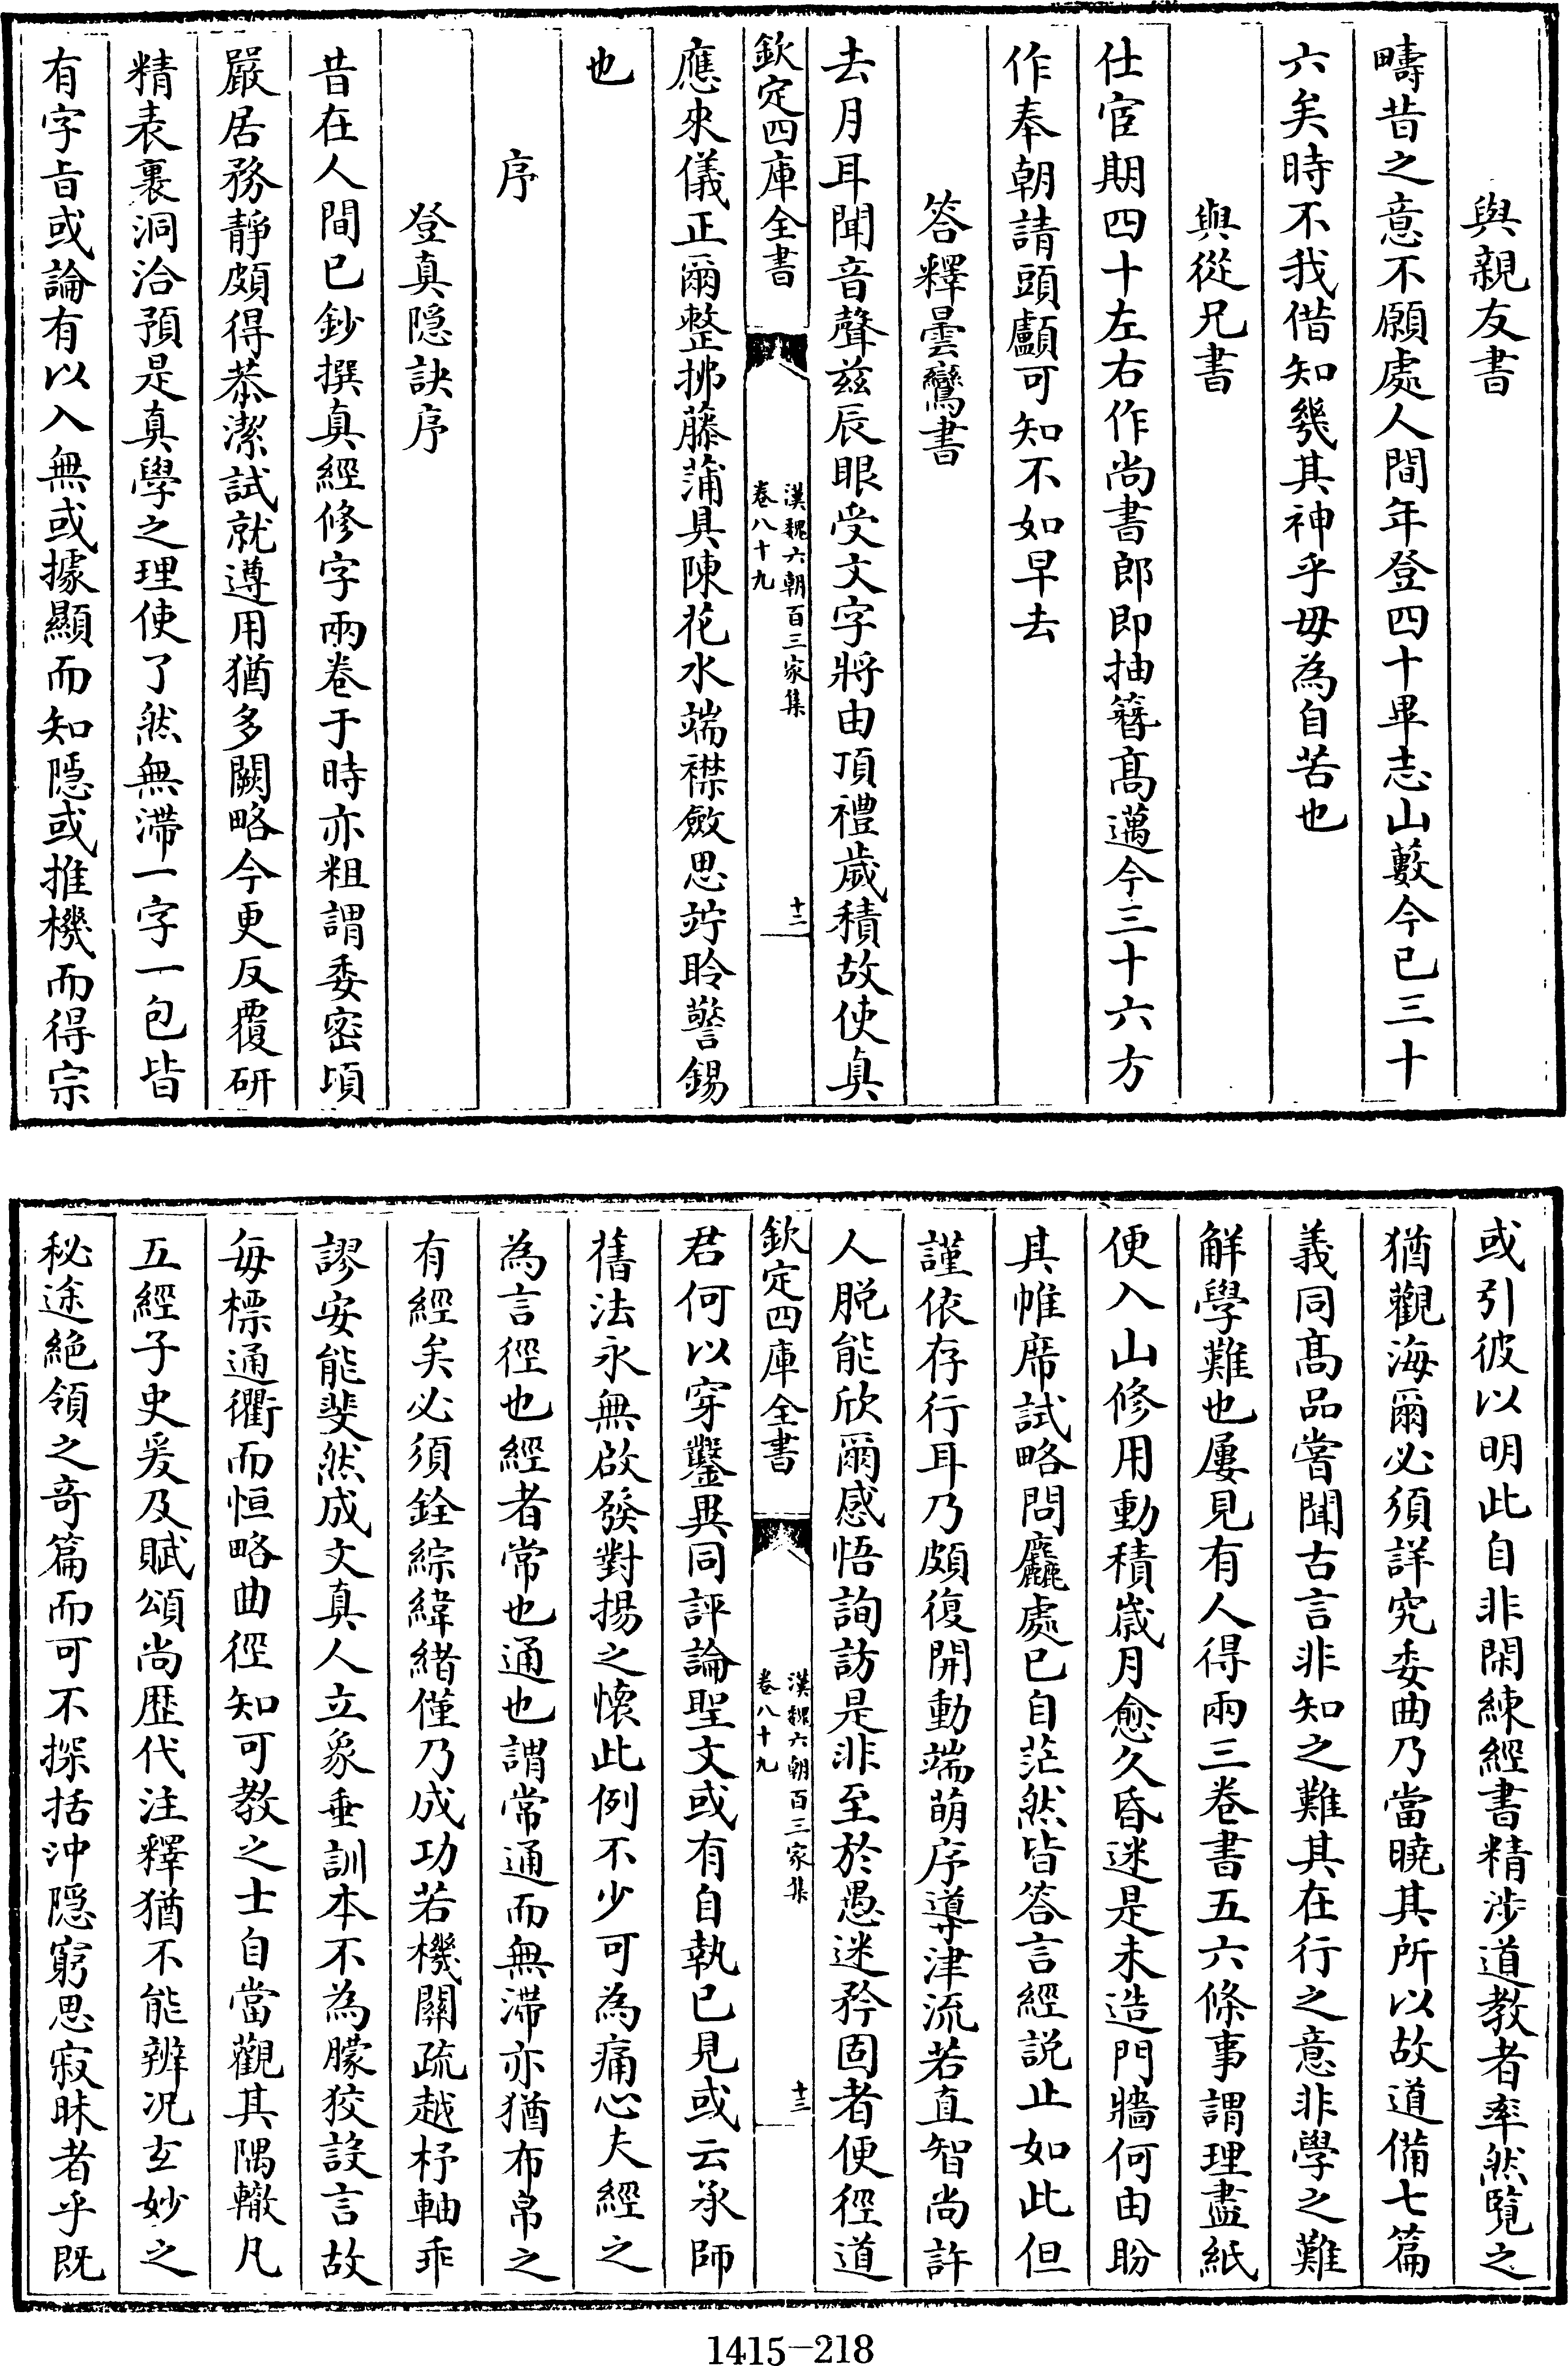 與親友書
疇昔之意不願處人間年登四十畢志山藪今已三十
六矣時不我借知幾其神乎毋為自苦也
與從兄書
仕宦期四十左右作尚書郎即抽簪髙邁今三十六方
作奉朝請頭顱可知不如早去
答釋曇鸞書
去月耳聞音聲兹辰眼受文字將由頂禮歲積故使真
欽定四庫全書
漢魏六朝百三家集
卷八十九
十二
應來儀正爾整拂藤蒲具陳花水端襟斂思竚聆警錫
也
序
登真隠訣序
昔在人間已鈔撰真經修字兩卷于時亦粗謂委密頃
嚴居務靜頗得恭潔試就遵用猶多闕略今更反覆研
精表裏洞洽預是真學之理使了然無滯一字一包皆
有字旨或論有以入無或據顯而知隠或推機而得宗
或引彼以明此自非閑練經書精涉道教者率然覽之
猶觀海爾必須詳究委曲乃當曉其所以故道備七篇
義同髙品嘗聞古言非知之難其在行之意非學之難
解學難也屢見有人得兩三卷書五六條事謂理盡紙
便入山修用動積歲月愈久昏迷是未造門牆何由盼
其帷席試略問麤處已自茫然皆答言經説止如此但
謹依存行耳乃頗復開動端萌序導津流若直智尚許
人脱能欣爾感悟詢訪是非至於愚迷矜固者便徑道
欽定四庫全書
漢魏六朝百三家集
卷八十九
十三
君何以穿鑿異同評論聖文或有自執已見或云承師
舊法永無啟發對揚之懷此例不少可為痛心夫經之
為言徑也經者常也通也謂常通而無滯亦猶布帛之
有經矣必須銓綜緯緒僅乃成功若機關疏越杼軸乖
謬安能斐然成文真人立象垂訓本不為朦狡設言故
每標通衢而恒略曲徑知可教之士自當觀其隅轍凡
五經子史爰及賦頌尚歴代注釋猶不能辨况玄妙之
秘途絶領之奇篇而可不探括沖隠窮思寂昧者乎既
1415-218